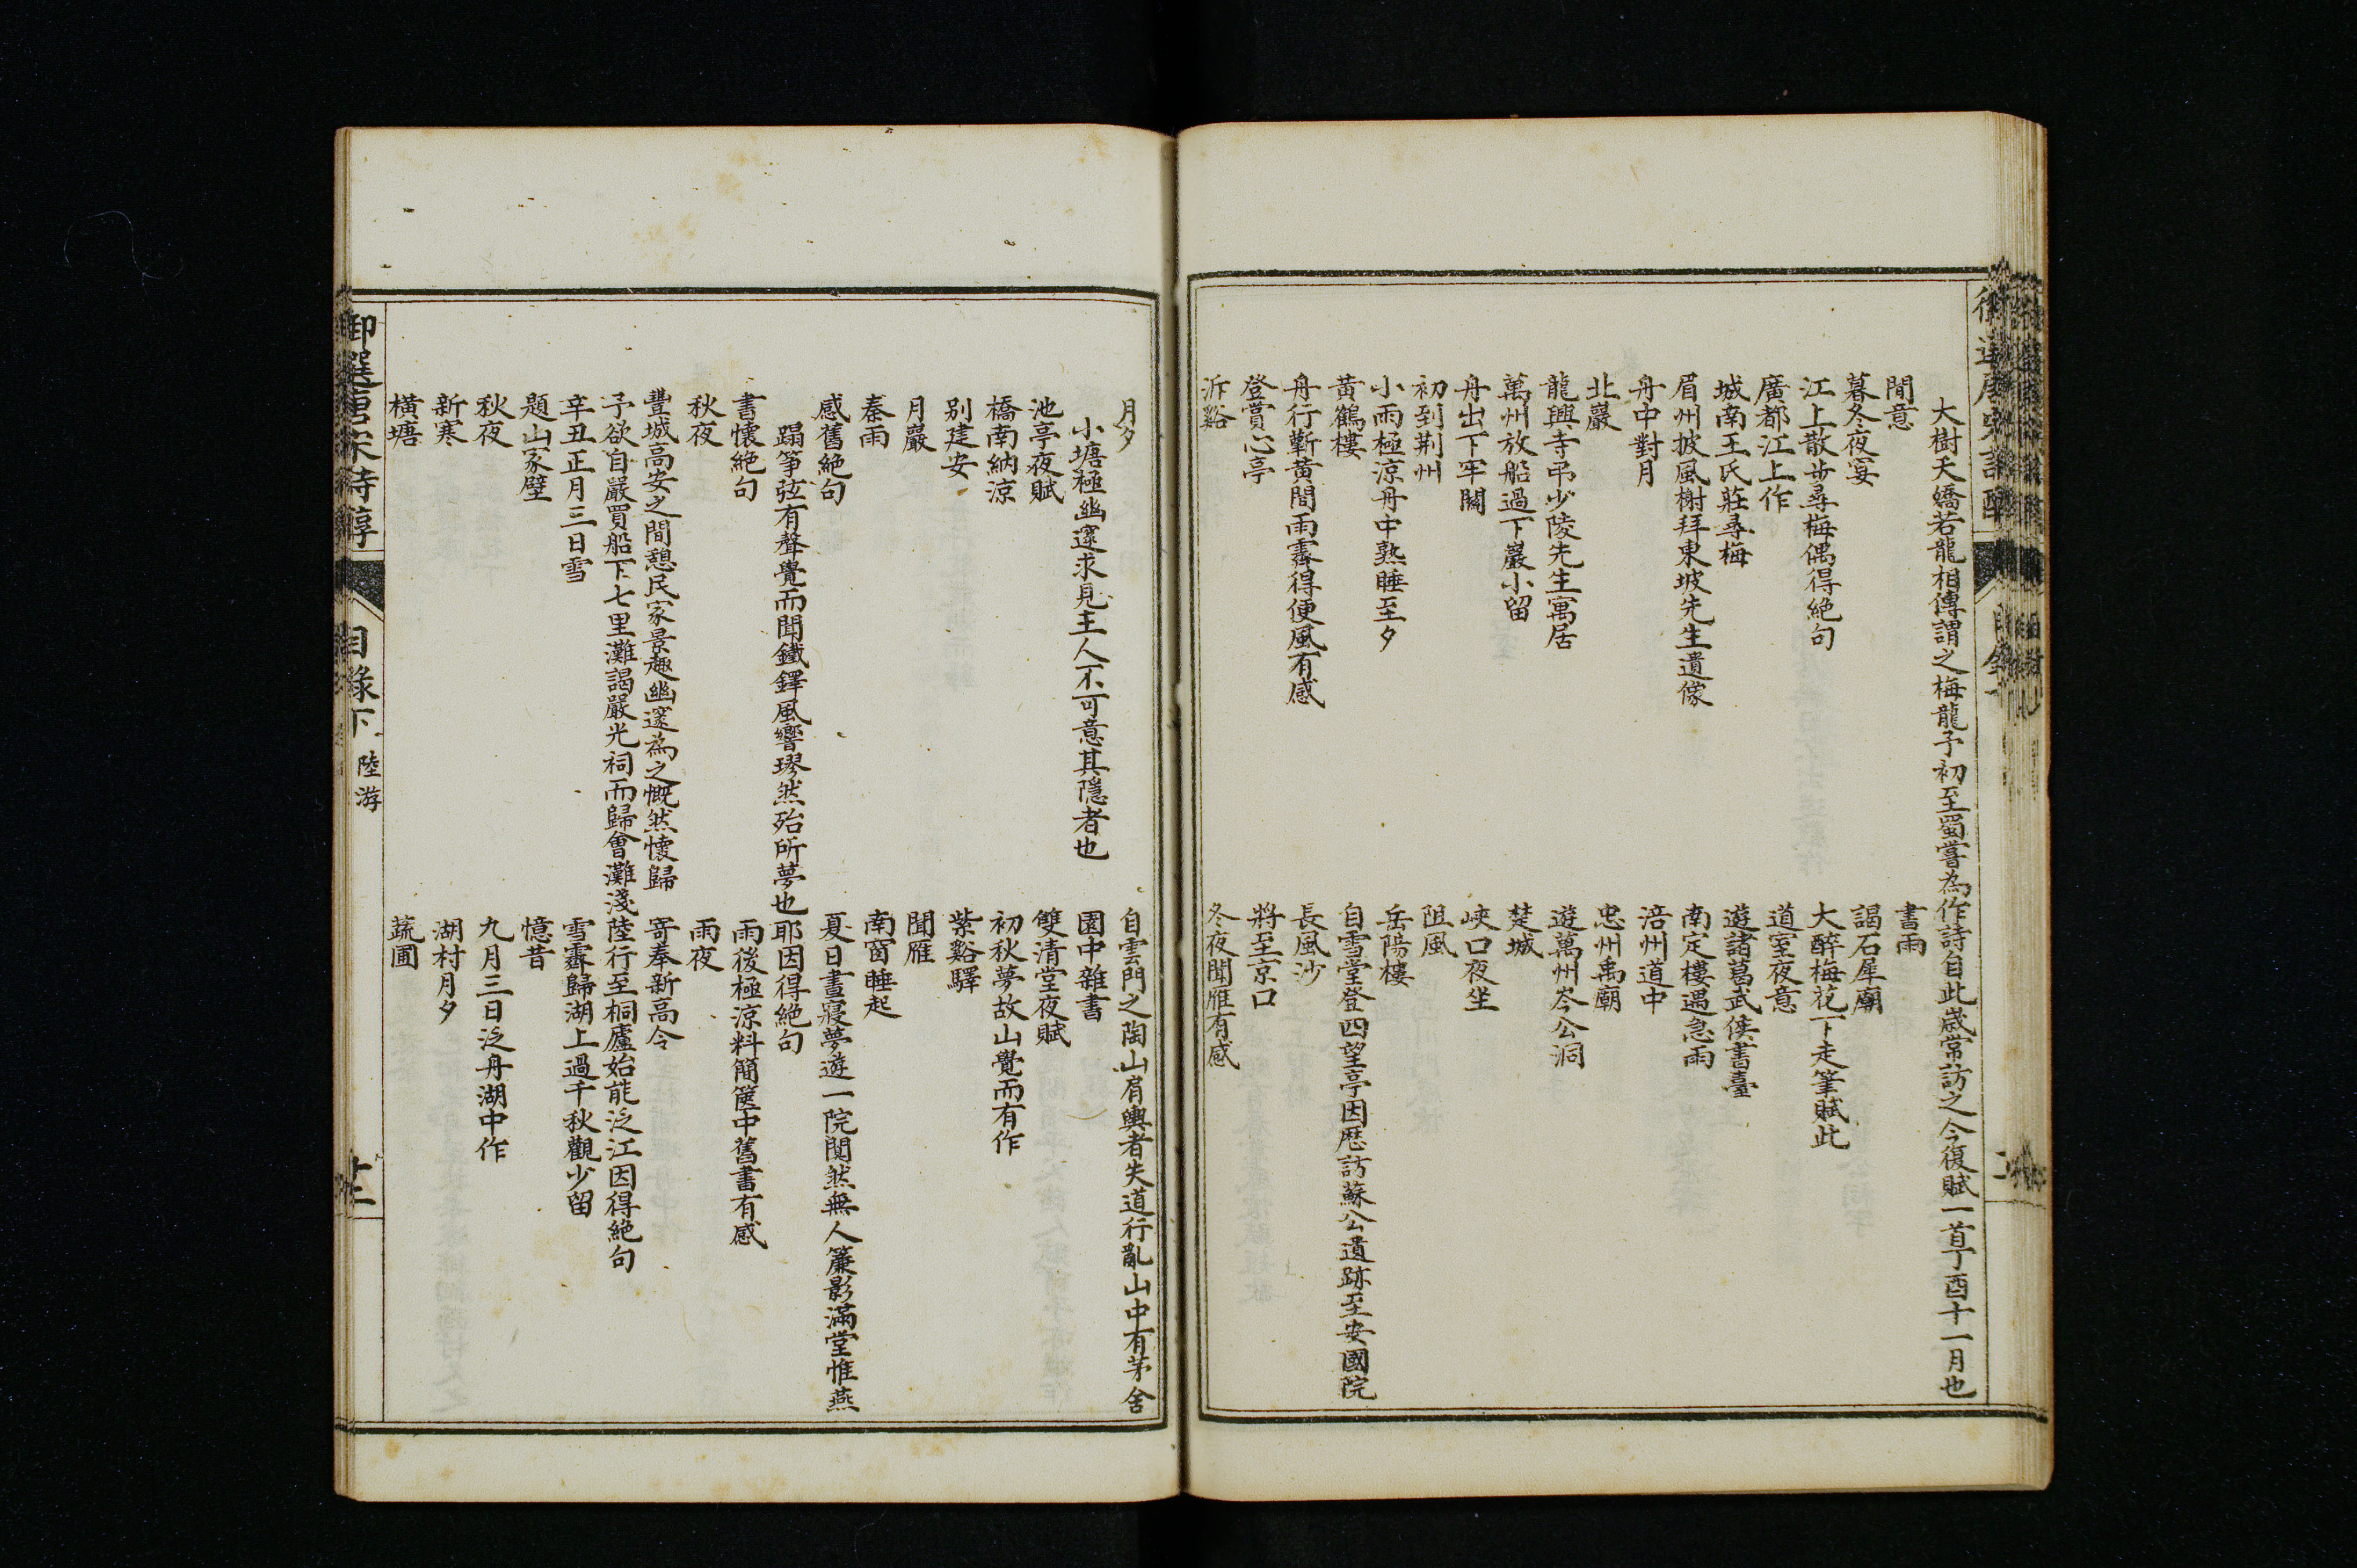 大樹夭嬌若龍相傳謂之梅龍予初至蜀嘗為作詩自此歲常訪之今復賦一首丁酉十一月也
閒意
書雨
暮冬夜宴
謁石犀廟
江上散步尋梅偶得絶句
大醉梅花下走筆賦此
廣都江上作
道室夜意
城南王氏莊尋梅
遊諸葛武侯書臺
眉州披風榭拜東坡先生遺像
南定樓遇急雨
舟中對月
涪州道中
北巖
忠州禹廟
龍興寺弔少陵先生寓居
遊萬州岑公洞
萬州放船過下巖小留
楚城
舟出下牢關
峽口夜坐
初到荆州
阻風
小雨極涼舟中熟睡至夕
岳陽樓
黃鶴樓
自雪堂登四望亭因歷訪蘇公遺跡至安國院
舟行蘄黃間雨霽得便風有感
長風沙
登賞心亭
將至京口
泝谿
冬夜聞雁有感
月夕
自雲門之陶山肩輿者失道行亂山中有茅舍
小塘極幽邃求見主人不可意其隱者也
園中雜書
池亭夜賦
雙清堂夜賦
橋南納涼
初秋夢故山覺而有作
别建安
紫谿驛
月巖
聞雁
秦雨
南窗睡起
感舊絶句
夏日晝寢夢遊一院闃然無人簾影滿堂惟燕
蹋筝弦有聲覺而聞鐵鐸風響璆然殆所夢也耶因得絶句
書懷絶句
雨後極涼料簡篋中舊書有感
秋夜
雨夜
豐城高安之間憩民家景趣幽邃為之慨然懷歸
寄奉新高令
予欲自嚴買船下七里灘謁嚴光祠而歸會灘淺陸行至桐廬始能泛江因得絶句
辛丑正月三日雪
雪霽歸湖上過千秋觀少留
題山家壁
憶昔
秋夜
九月三日泛舟湖中作
新寒
湖村月夕
橫塘
蔬圃
御選唐宋詩醇
目錄下
陸游